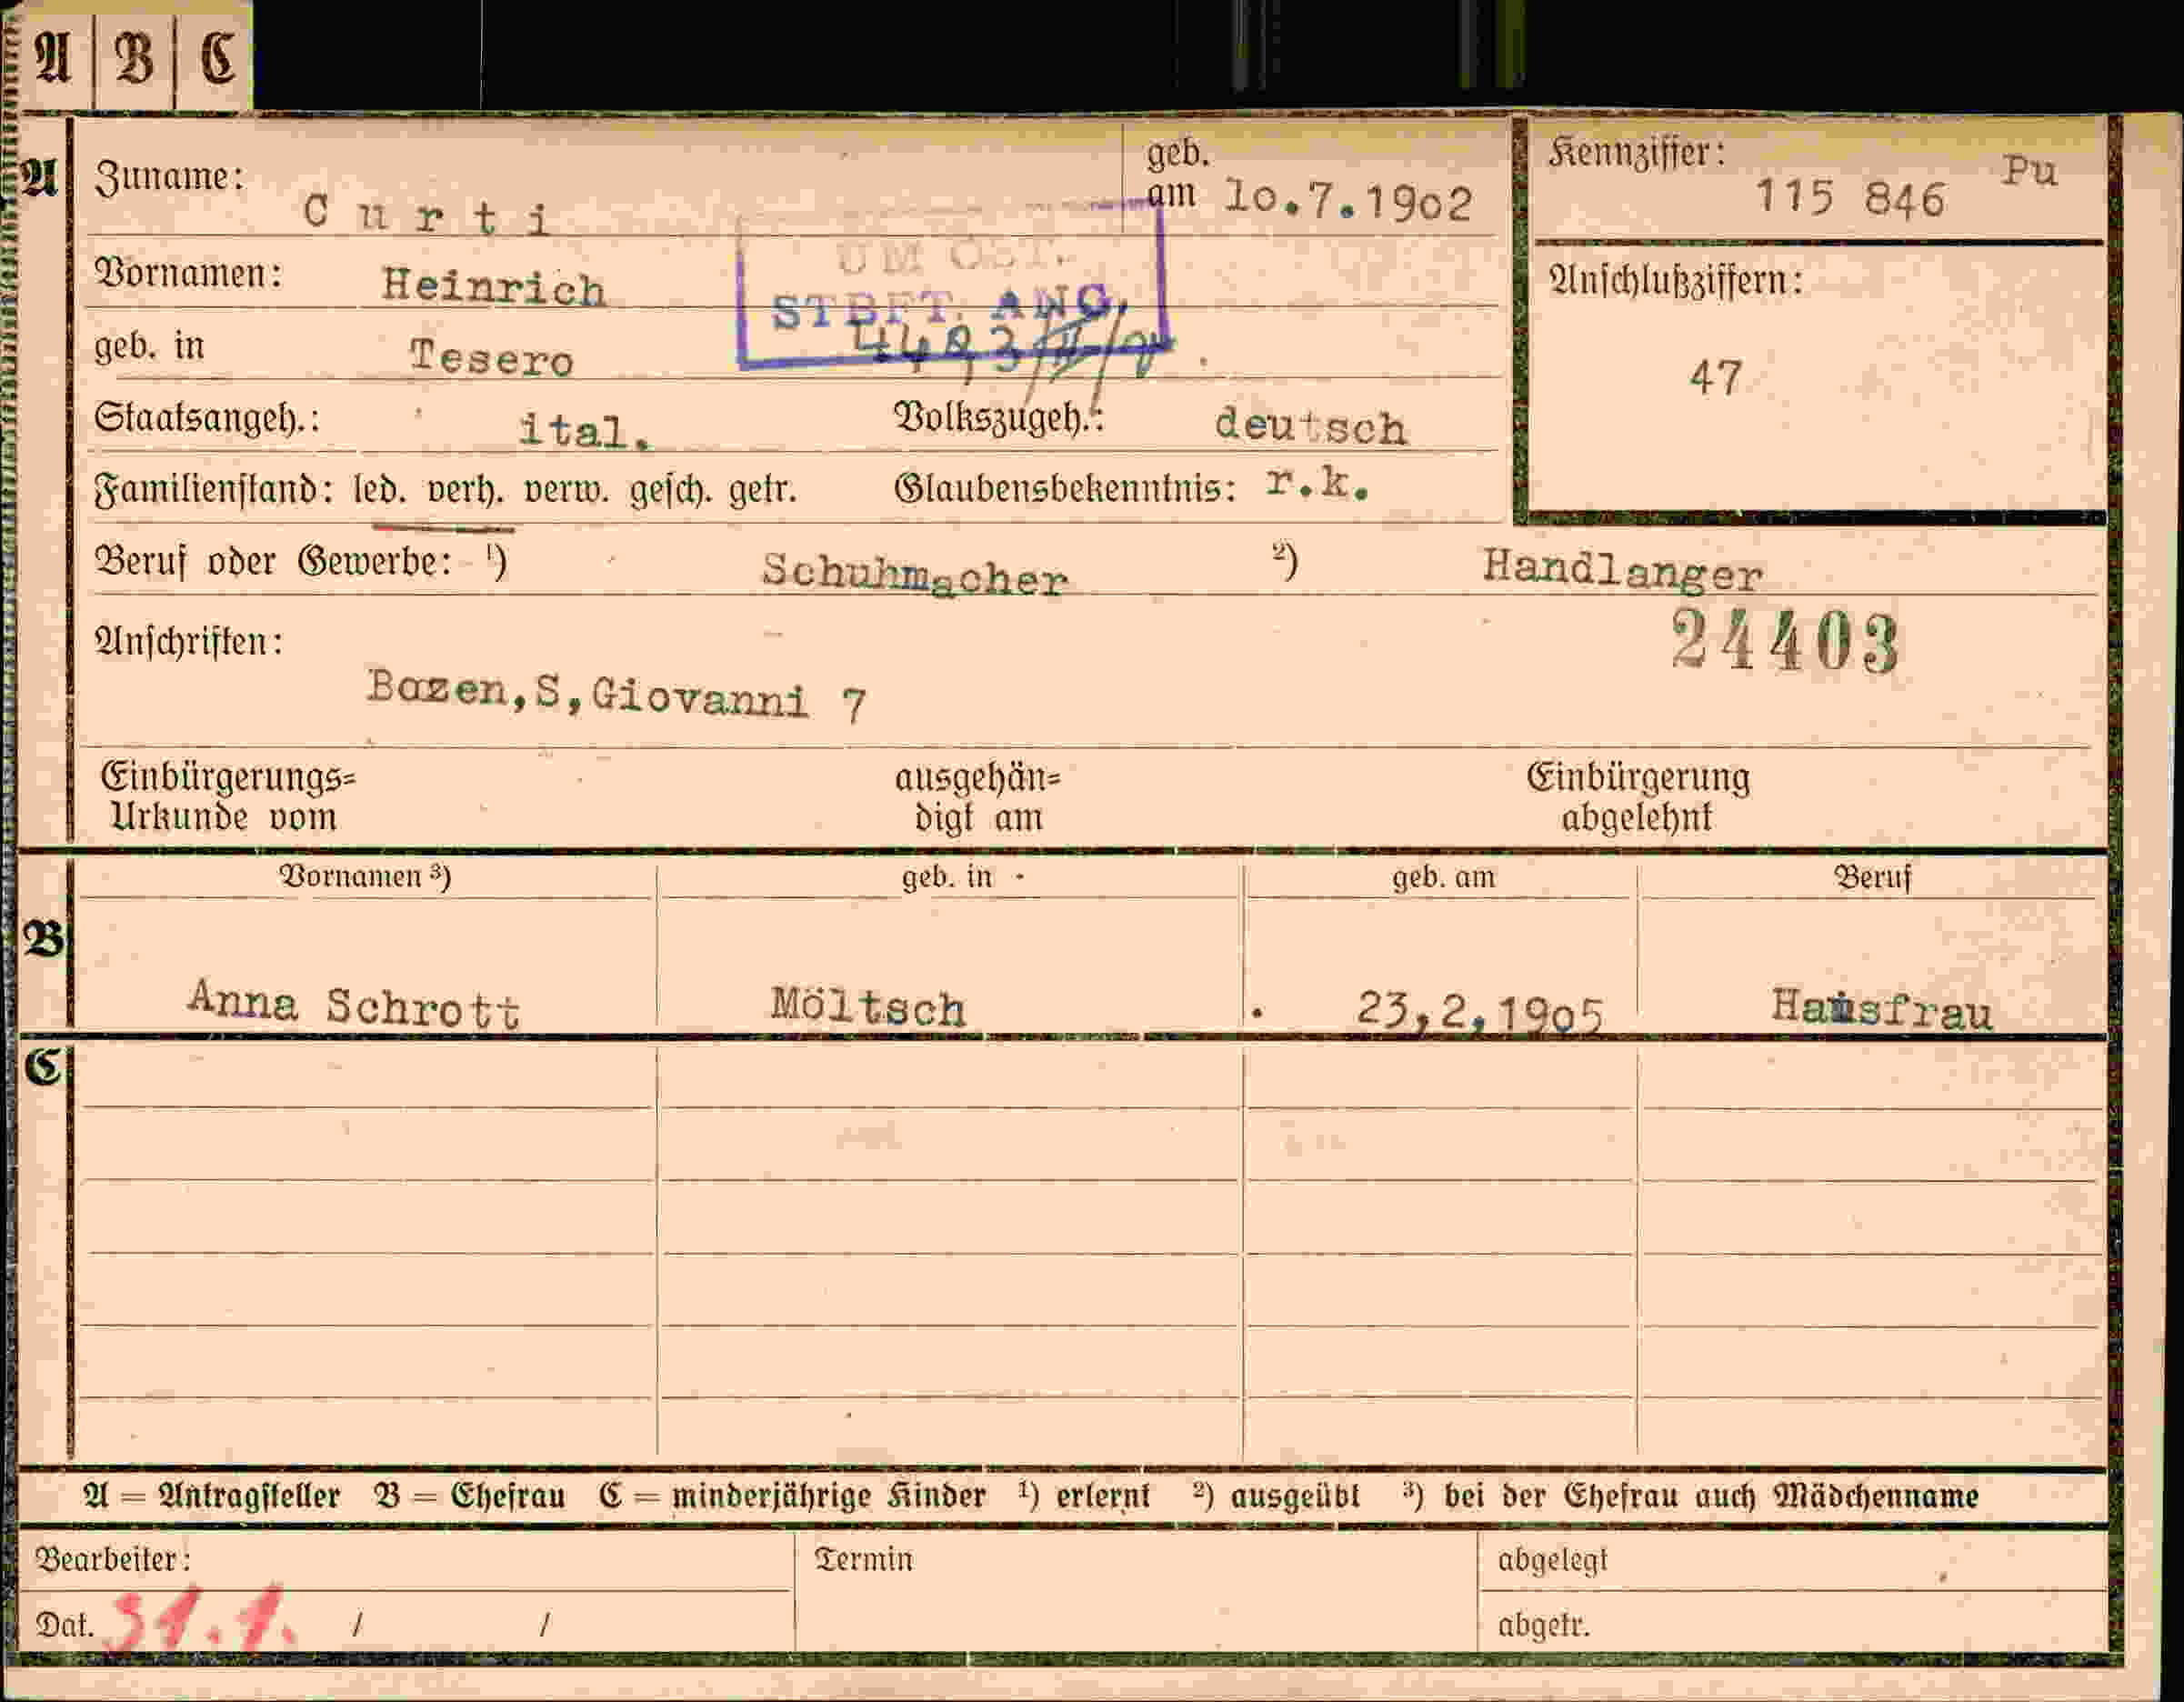 A B C
A Zuname: Curti geb. am 10.7.1902 Kennziffer: 115 846 Pu
Vornamen: Heinrich UM ÖST.
STBFT. ANG.
geb. in Tesero
Anschlußziffern:
47
Staatsangeh.: ital. Volkszugeh.: deutsch
Familienstand: led. verh. verw. gesch. getr. Glaubensbekenntnis: r.k.
Beruf oder Gewerbe: 1) Schuhmacher 2) Handlanger
24403
Anschriften:
Bozen,S,Giovanni 7
Einbürgerungs= ausgehän= Einbürgerung
Urkunde vom digt am abgelehnt
Vornamen 3) geb. in geb. am Beruf
B
Anna Schrott Möltsch 23,2,1905 Hausfrau
C
A = Antragsteller B = Ehefrau C = minderjährige Kinder 1) erlernt 2) ausgeübt 3) bei der Ehefrau auch Mädchenname
Bearbeiter: Termin abgelegt
Dat. 31.1. / / abgetr.